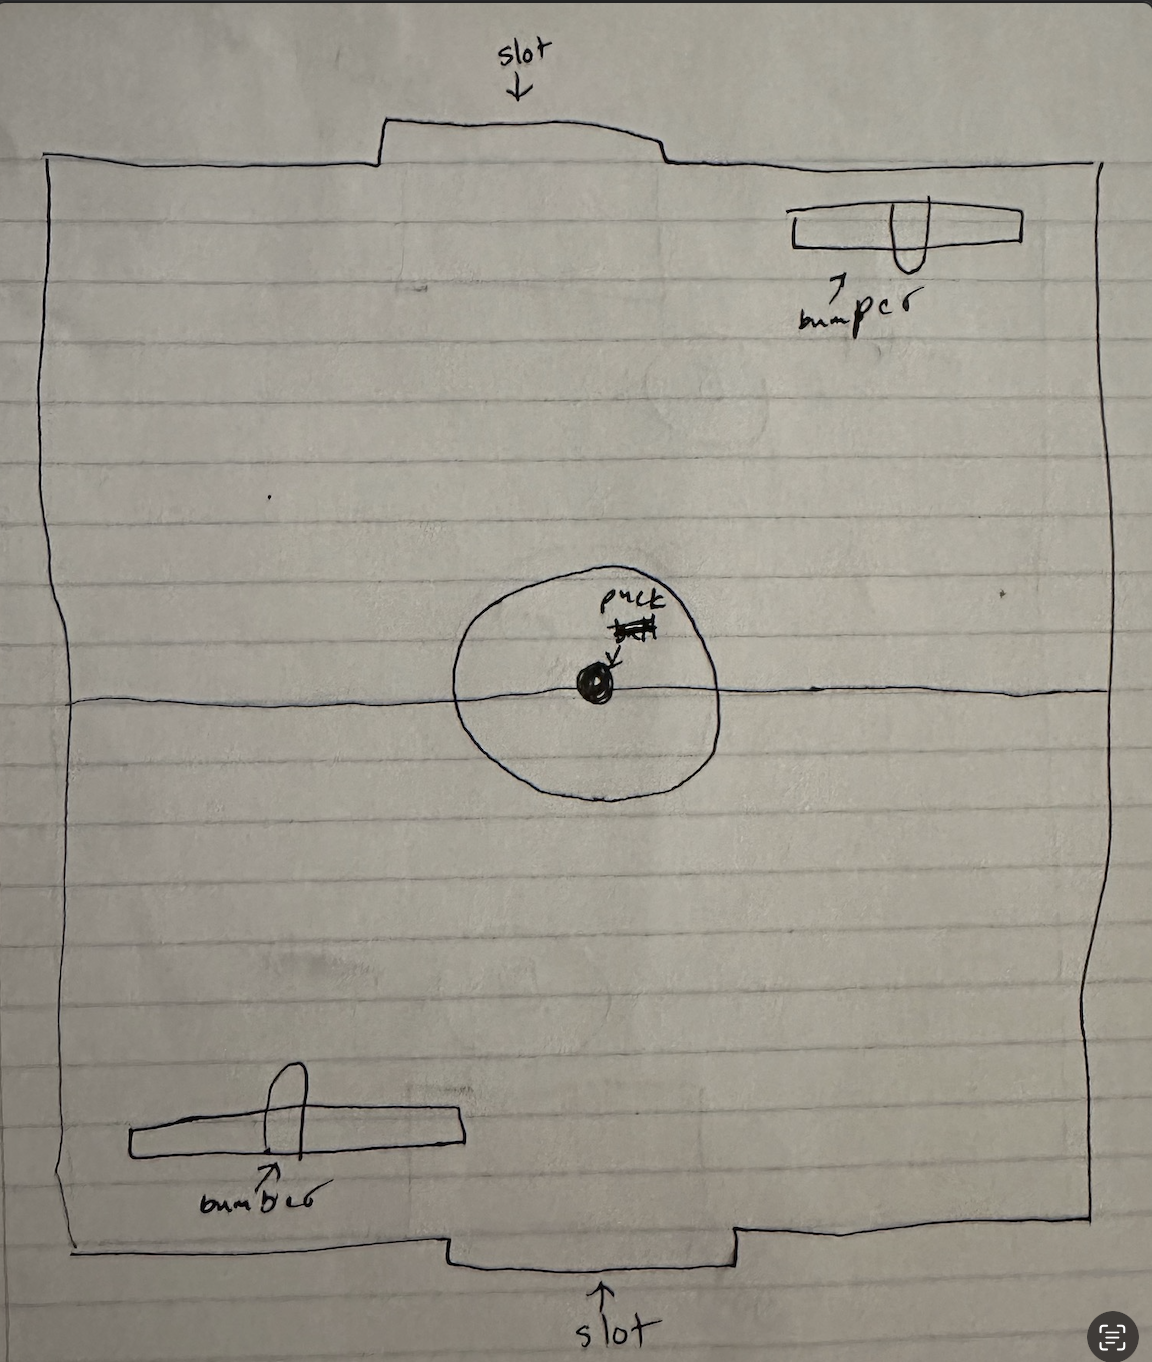 slot
bumper
puck
bumber
slot